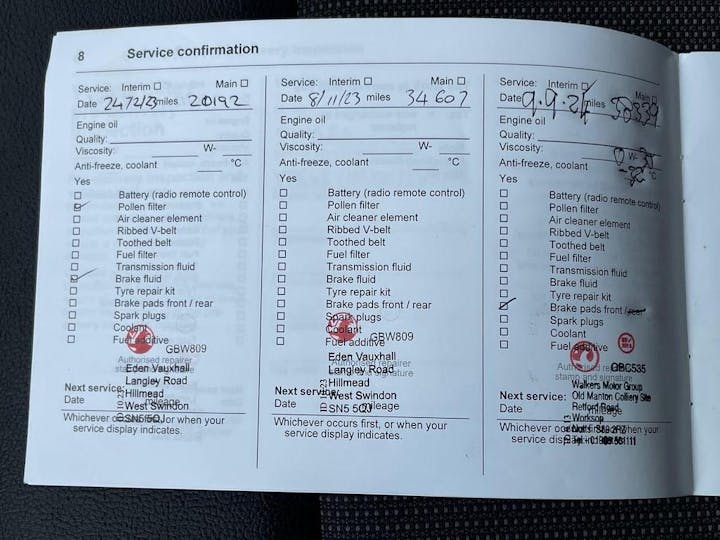 8 Service confirmation
Service: Interim ☐ Main ☐
Date 24/2/23 miles 20192
Engine oil
Quality:
Viscosity: W-
Anti-freeze, coolant °C
Yes
☐ Battery (radio remote control)
☑ Pollen filter
☐ Air cleaner element
☐ Ribbed V-belt
☐ Toothed belt
☐ Fuel filter
☐ Transmission fluid
☑ Brake fluid
☐ Tyre repair kit
☐ Brake pads front / rear
☐ Spark plugs
☐ Coolant
☐ Fuel additive
GBW809
Authorised repairer
stamp and signature
Eden Vauxhall
Langley Road
Hillmead
West Swindon
SN5 5QJ
Next service:
Date mileage
Whichever occurs first, or when your
service display indicates.
Service: Interim ☐ Main ☐
Date 8/11/23 miles 34607
Engine oil
Quality:
Viscosity: W-
Anti-freeze, coolant °C
Yes
☐ Battery (radio remote control)
☐ Pollen filter
☐ Air cleaner element
☐ Ribbed V-belt
☐ Toothed belt
☐ Fuel filter
☐ Transmission fluid
☐ Brake fluid
☐ Tyre repair kit
☐ Brake pads front / rear
☐ Spark plugs
☐ Coolant
☐ Fuel additive
GBW809
Authorised repairer
stamp and signature
Eden Vauxhall
Langley Road
Hillmead
West Swindon
SN5 5QJ
Next service:
Date mileage
Whichever occurs first, or when your
service display indicates.
Service: Interim ☑ Main ☐
Date 9.9.24 miles
Engine oil
Quality:
Viscosity: W-
Anti-freeze, coolant °C
Yes
☐ Battery (radio remote control)
☐ Pollen filter
☐ Air cleaner element
☐ Ribbed V-belt
☐ Toothed belt
☐ Fuel filter
☐ Transmission fluid
☐ Brake fluid
☐ Tyre repair kit
☑ Brake pads front / rear
☐ Spark plugs
☐ Coolant
☐ Fuel additive
Authorised repairer
stamp and signature
Walkers Motor Group
Old Manton Colliery Site
Retford Road
Worksop
Next service:
Date mileage
Whichever occurs first, or when your
service display indicates.